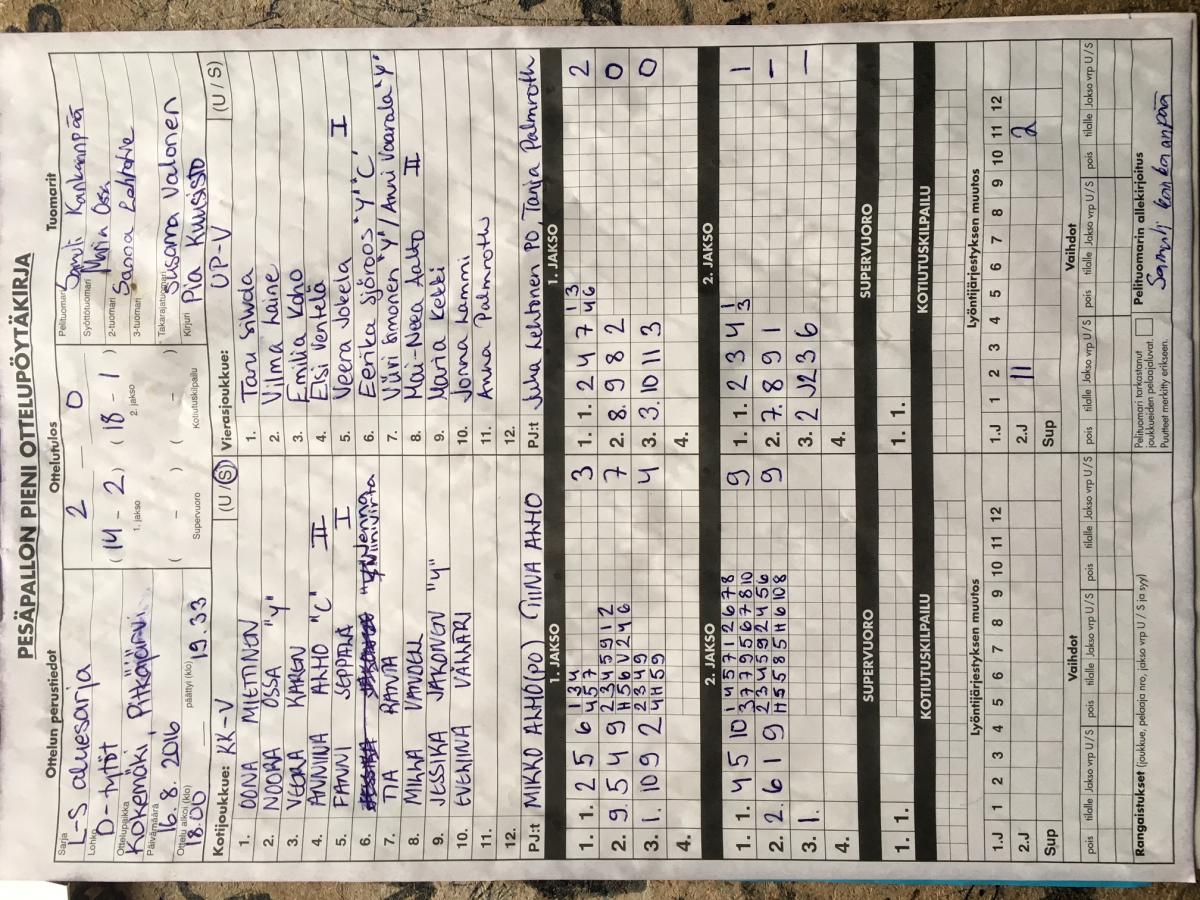 PESÄPALLON PIENI OTTELUPÖYTÄKIRJA
Ottelun perustiedot
Sarja L-S aluesarja
Lohko D-tytöt
Ottelupaikka Kokemäki, Pitkäjärvi
Päivämäärä 16.8.2016
Ottelu alkoi (klo) 18.00 päättyi (klo) 19.33
Ottelutulos
2 — 0
(14 - 2) (18 - 1)
1. jakso 2. jakso
( - ) ( - )
Supervuoro Kotiutuskilpailu
Tuomarit
Pelituomari Samuli Kankaanpää
Syöttötuomari Maria Ossa
2-tuomari Sanna Lehtotie
3-tuomari
Takarajatuomari Susanna Valonen
Kirjuri Pia Kuusisto
Kotijoukkue: KK-V (U / S)
1. OONA MIETTINEN
2. NOORA OSSA "Y"
3. VEERA KAREN
4. ANNIINA ALHO "C" II
5. FANNI SEPPÄLÄ I
6.
7. TIA RANTA
8. MINJA VAINELA
9. JESSIKA JAKONEN "Y"
10. EVELIINA VÄLLÄRI
11.
12.
PJ:t MIKKO ALHO (PO) TIINA ALHO
Vierasjoukkue: UP-V (U / S)
1. Taru Siwula
2. Vilma Laine
3. Emilia Koho
4. Elsi Ventelä
5. Veera Jokela I
6. Eerika Sjöroos "Y" "C"
7. Viivi Simonen "Y" / Anni Vaarala "Y"
8. Mai-Neea Aalto II
9. Maria Kekki
10. Jonna Lammi
11. Anna Palmroth
12.
PJ:t Juha Lehtonen PO Tanja Palmroth
1. JAKSO
1. 1. 2 5 6 1 3 4 3
4 5 7
2. 9. 5 4 9 2 3 4 5 9 1 2 7
3. 1. 10 9 2 2 3 4 9 4
4 H 5 9
4.
2. JAKSO
1. 1. 4 5 10 1 4 5 7 1 2 6 7 8 9
3 7 7 9 5 6 7 8 10
2. 2. 6 1 9 2 3 4 5 9 2 4 5 6 9
H 5 5 8 5 H 6 10 8
3. 1.
4.
SUPERVUORO
1. 1.
KOTIUTUSKILPAILU
1. JAKSO
1. 1. 2 4 7 1 3 2
4 6
2. 8. 9 8 2 0
3. 3. 10 11 3 0
4.
2. JAKSO
1. 1. 2 3 4 1 1
3
2. 7. 8 9 1 —
3. 2 3 6 —
4.
SUPERVUORO
1. 1.
KOTIUTUSKILPAILU
Lyöntijärjestyksen muutos
1 2 3 4 5 6 7 8 9 10 11 12
1.J
2.J
Sup
Vaihdot
pois tilalle Jakso vrp U / S pois tilalle Jakso vrp U / S pois tilalle Jakso vrp U / S
Lyöntijärjestyksen muutos
1 2 3 4 5 6 7 8 9 10 11 12
1.J
2.J 11 2
Sup
Vaihdot
pois tilalle Jakso vrp U / S pois tilalle Jakso vrp U / S pois tilalle Jakso vrp U / S
Rangaistukset (joukkue, pelaaja nro, jakso vrp U / S ja syy)
Pelituomari tarkastanut
joukkueiden pelaajaluvat.
Puutteet merkitty erikseen.
Pelituomarin allekirjoitus
Samuli Kankaanpää